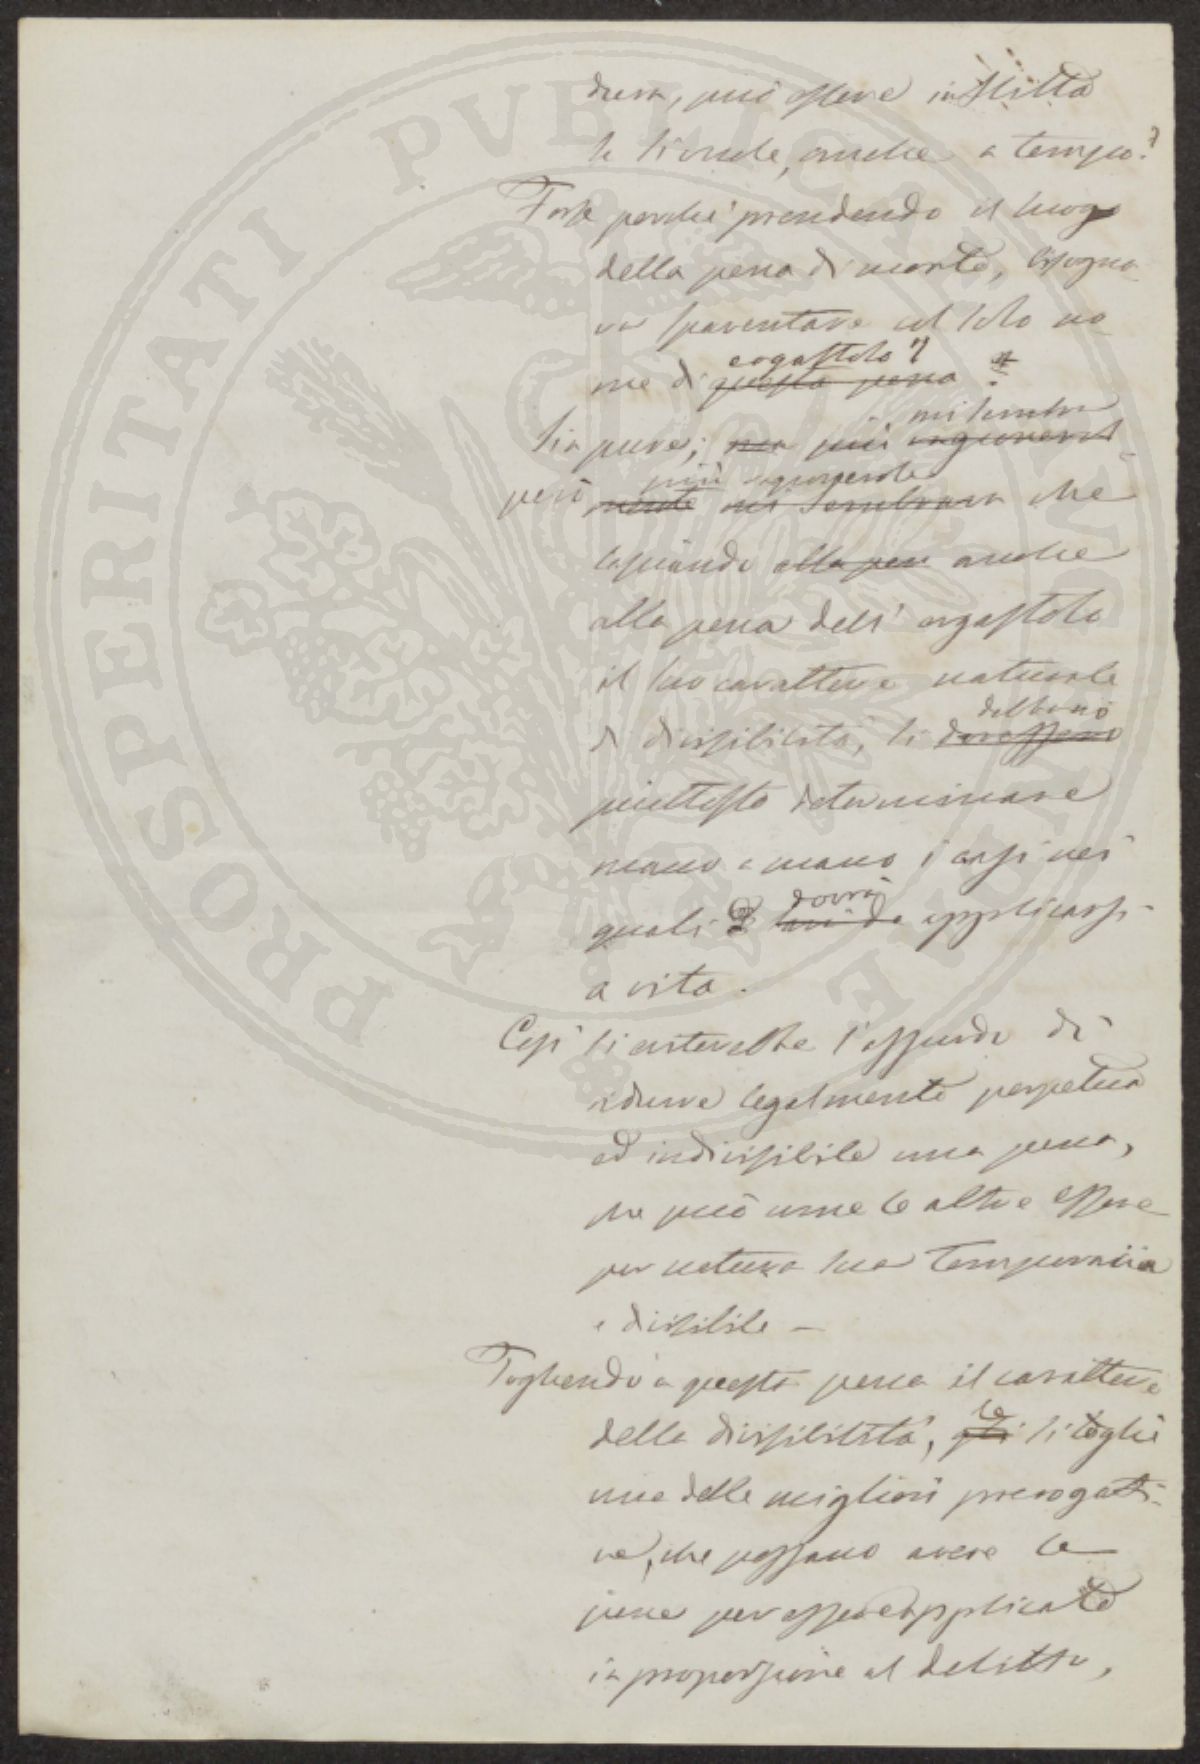 dura, può essere inflitta
la si vuole, anche a tempo?
Forse perché prendendo il luogo
della pena di morte, bisogna-
va spaventare col solo no-
me di questa pena ergastolo?
Sia pure; ma più mi sembra
però più ragionevole mi sembrava che
lasciando alla pen anche
alla pena dell'ergastolo
il suo carattere naturale
di divisibilità, si dovessero debbano
piuttosto determinare
mano a mano i casi nei
quali dovrà applicarsi
a vita.
Così si eviterebbe l'assurdo di
ridurre legalmente perpetua
ed indivisibile una pena,
che può come le altre essere
per natura sua temporanea
e divisibile —
Togliendo a questa pena il carattere
della divisibilità, gli le si toglie
una delle migliori prerogati-
ve, che possano avere le
pene per essere applicate
in proporzione al delitto,
PROSPERITATI PVBLICAE